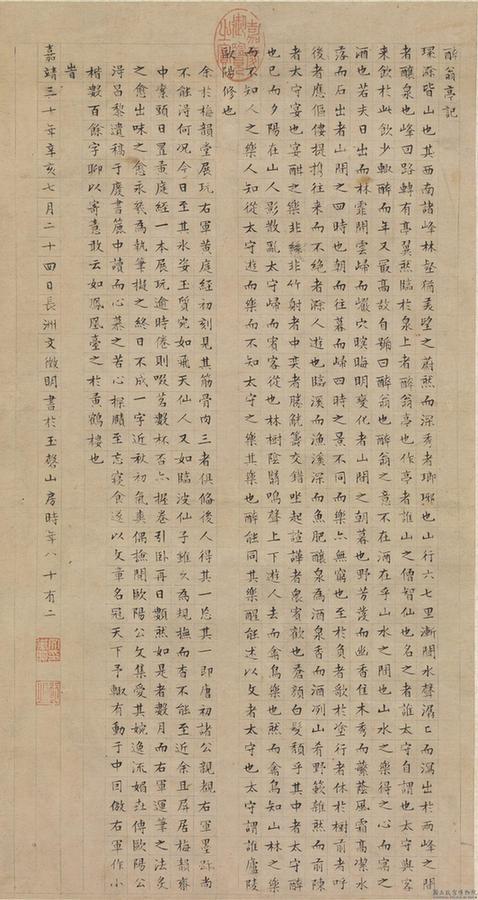 醉翁亭記
環滁皆山也其西南諸峰林壑猶美望之蔚然而深秀者瑯琊也山行六七里漸聞水聲潺〻而瀉出於兩峰之間
者釀泉也峰回路轉有亭翼然臨於泉上者醉翁亭也作亭者誰山之僧智仙也名之者誰太守自謂也太守與客
來飲於此飲少輒醉而年又最高故自號曰醉翁也醉翁之意不在酒在乎山水之間也山水之樂得之心而寓之
酒也若夫日出而林霏開雲歸而巖穴暝晦明變化者山間之朝暮也野芳發而幽香佳木秀而蘩蔭風霜高潔水
落而石出者山間之四時也朝而往暮而歸四時之景不同而樂亦無窮也至於負者歌於塗行者休於樹前者呼
後者應傴僂提攜往來而不絕者滁人遊也臨溪而漁溪深而魚肥釀泉為酒泉香而酒冽山肴野蔌雜然而前陳
者太守宴也宴酣之樂非絲非竹射者中奕者勝觥籌交錯坐起諠譁者衆賓歡也蒼顏白髮頹乎其中者太守醉
也已而夕陽在山人影散亂太守歸而賓客從也林樹陰翳鳴聲上下遊人去而禽鳥樂也然而禽鳥知山林之樂
而不知人之樂人知從太守遊而樂而不知太守之樂其樂也醉能同其樂醒能述以文者太守也太守謂誰廬陵
歐陽修也
余於梅韻堂展玩右軍黃庭經初刻見其筋骨肉三者俱備後人得其一忘其一即唐初諸公親覩右軍墨跡尚
不能得何況今日至其水姿玉質宛如飛天仙人又如臨波仙子雖久為規撫而杳不能至近余且屏居梅韻齋
中案頭日置黃庭經一本展玩逾時倦則啜茗數杯否亦握卷引臥再日數然如是者數月而右軍運筆之法炙
之愈出味之愈永幾為執筆擬之終日不成一字近秋初氣爽偶撫閱歐陽公文集愛其婉逸流媚世傳歐陽公
得昌黎遺稿于廢書簏中讀而心慕之苦心探賾至忘寢食遂以文章名冠天下予輒有動于中因倣右軍作小
楷數百餘字聊以寄意敢云如鳳凰臺之於黃鶴樓也
嘉靖三十年辛亥七月二十四日長洲文徵明書於玉磬山房時年八十有二